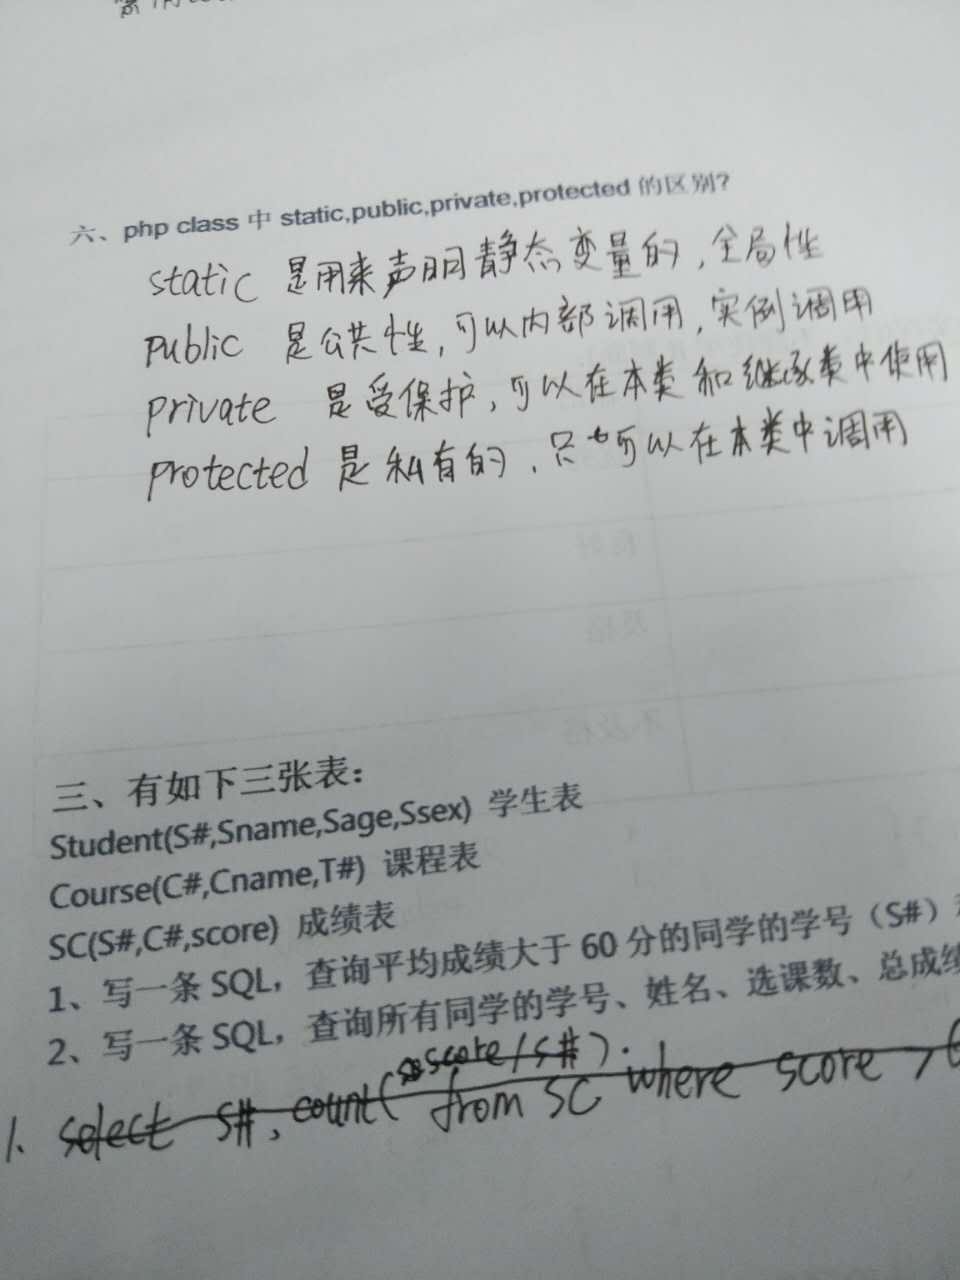 六、php class 中 static,public,private,protected 的区别?
static 是用来声明静态变量的,全局性
public 是公共性,可以内部调用,实例调用
private 是受保护,可以在本类和继承类中使用
protected 是私有的,只可以在本类中调用
良好
及格
不及格
三、有如下三张表:
Student(S#,Sname,Sage,Ssex) 学生表
Course(C#,Cname,T#) 课程表
SC(S#,C#,score) 成绩表
1、写一条 SQL,查询平均成绩大于 60 分的同学的学号(S#)
2、写一条 SQL,查询所有同学的学号、姓名、选课数、总成绩
score/s#).
1. select S#, count( from SC where score >